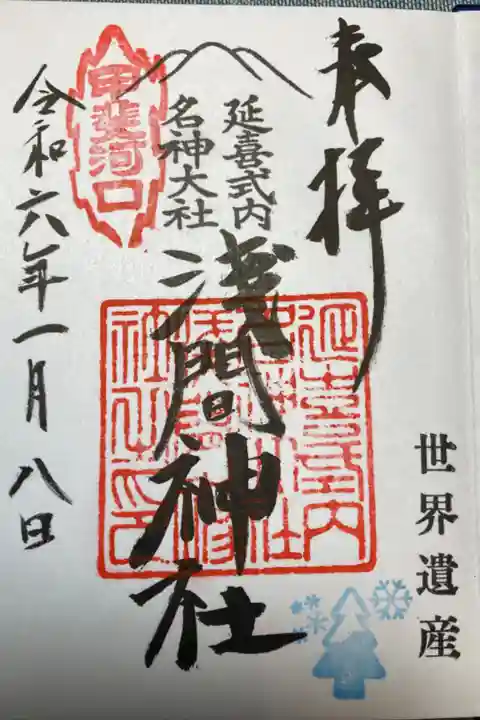 奉拝
世界遺産
延喜式内
名神大社
淺間神社
甲斐河口
令和六年一月八日